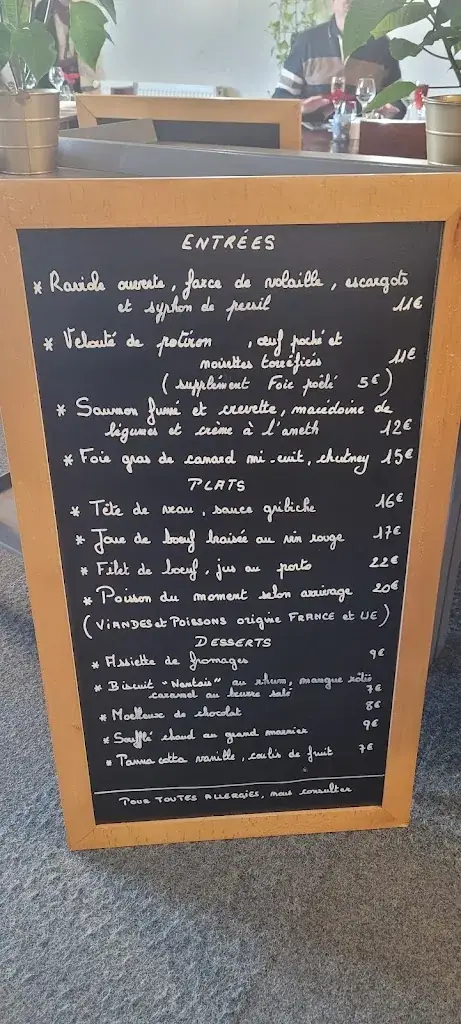 ENTRÉES
* Raviole ouverte, farce de volaille, escargots
et syphon de persil 11€
* Velouté de potiron , œuf poché et
noisettes torréfiées 11€
( supplément Foie poêlé 5€ )
* Saumon fumé et crevette, macédoine de
légumes et crème à l'aneth 12€
* Foie gras de canard mi-cuit, chutney 15€
PLATS
* Tête de veau, sauce gribiche 16€
* Joue de bœuf braisée au vin rouge 17€
* Filet de bœuf, jus au porto 22€
* Poisson du moment selon arrivage 20€
( VIANDES et POISSONS origine FRANCE et UE )
DESSERTS
* Assiette de fromages 9€
* Biscuit "Nantais" au rhum, mangue rôtie
caramel au beurre salé 7€
* Moelleux de chocolat 8€
* Soufflé chaud au grand marnier 9€
* Panna cotta vanille, coulis de fruit 7€
POUR TOUTES ALLERGIES, nous consulter